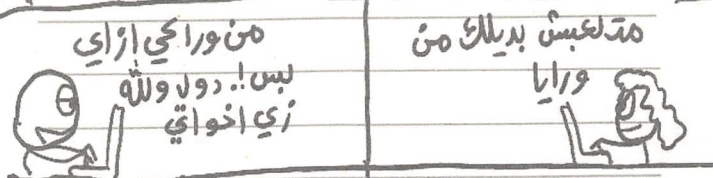 متلعبش بديلك من
ورايا
من وراكي إزاي
بس!. دول والله
زي اخواتي